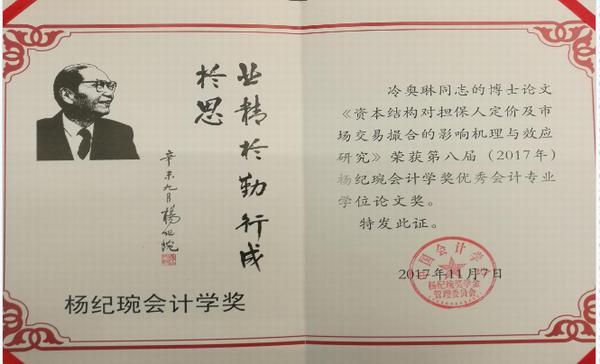 业精於勤行成
於思
辛未九月 楊紀琬
杨纪琬会计学奖
冷奥琳同志的博士论文
《资本结构对担保人定价及市
场交易撮合的影响机理与效应
研究》荣获第八届（2017年）
杨纪琬会计学奖优秀会计专业
学位论文奖。
特发此证。
中国会计学会
杨纪琬奖学金
管理委员会
2017年11月7日